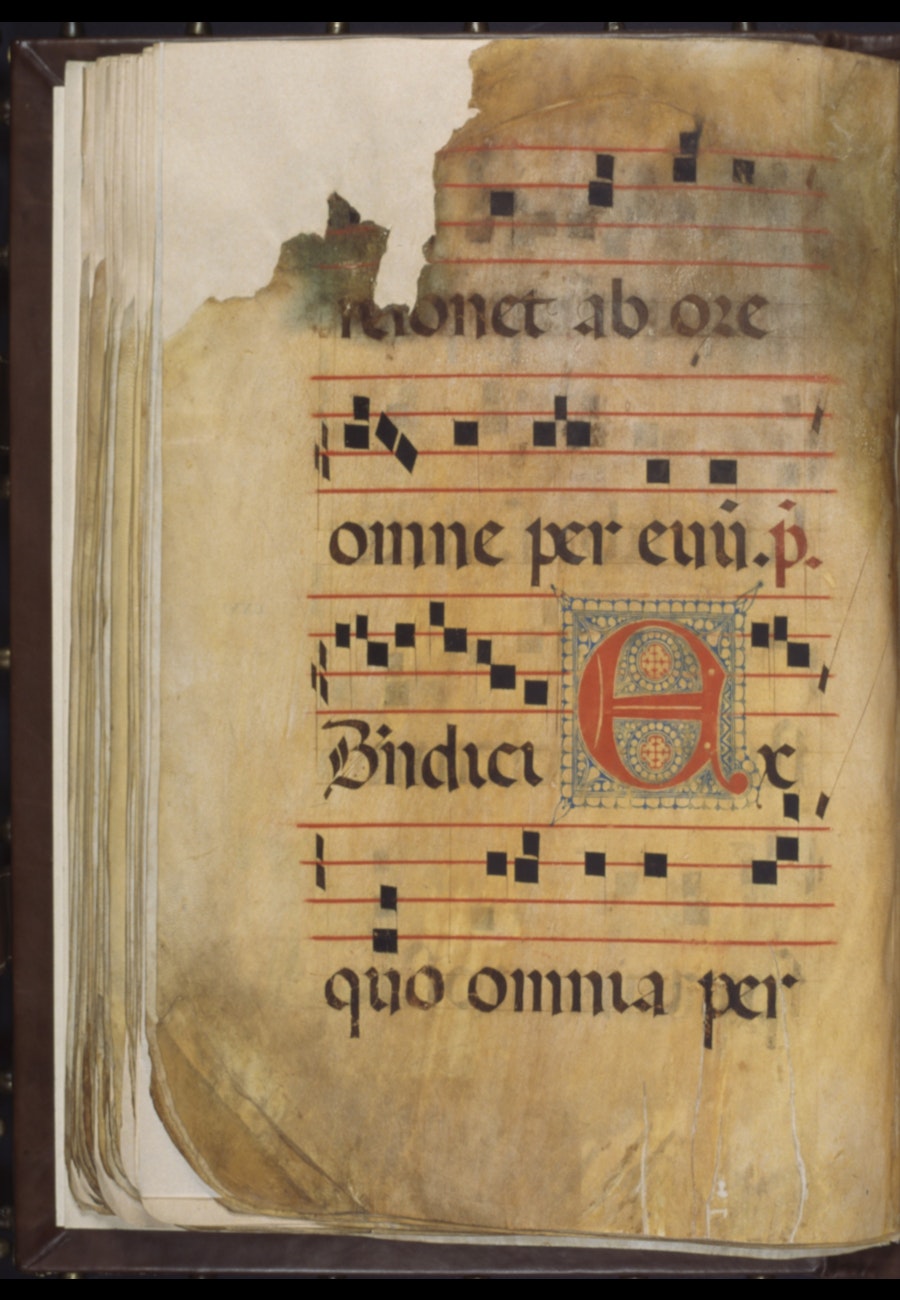 resonet ab ore
omne per euū. p̄.
Bn̄dici Ex
quo omnia per